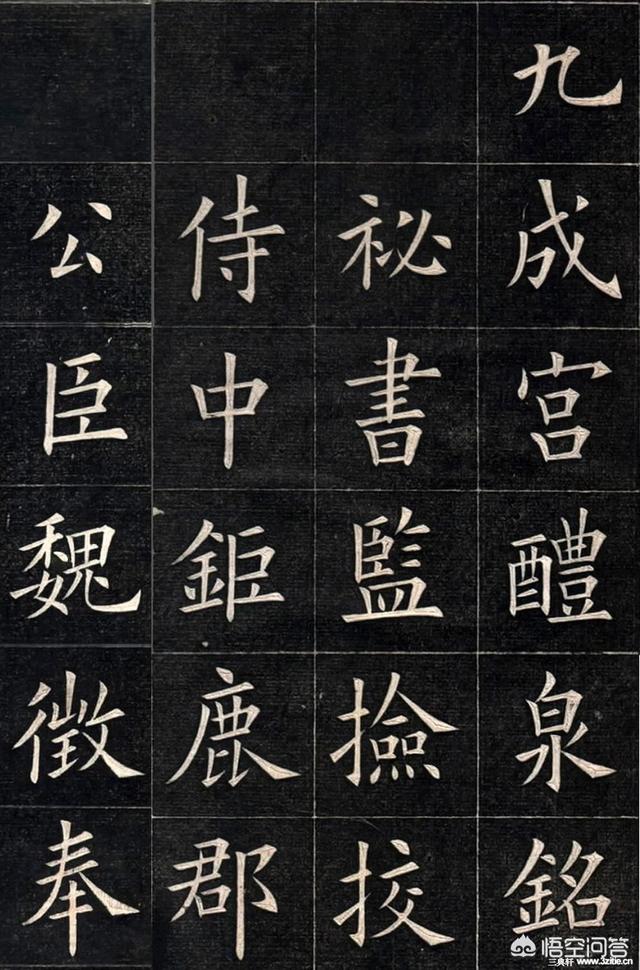 九成宮醴泉銘
祕書監撿挍
侍中鉅鹿郡
公臣魏徵奉
悟空问答
三典轩 www.3zitie.cn